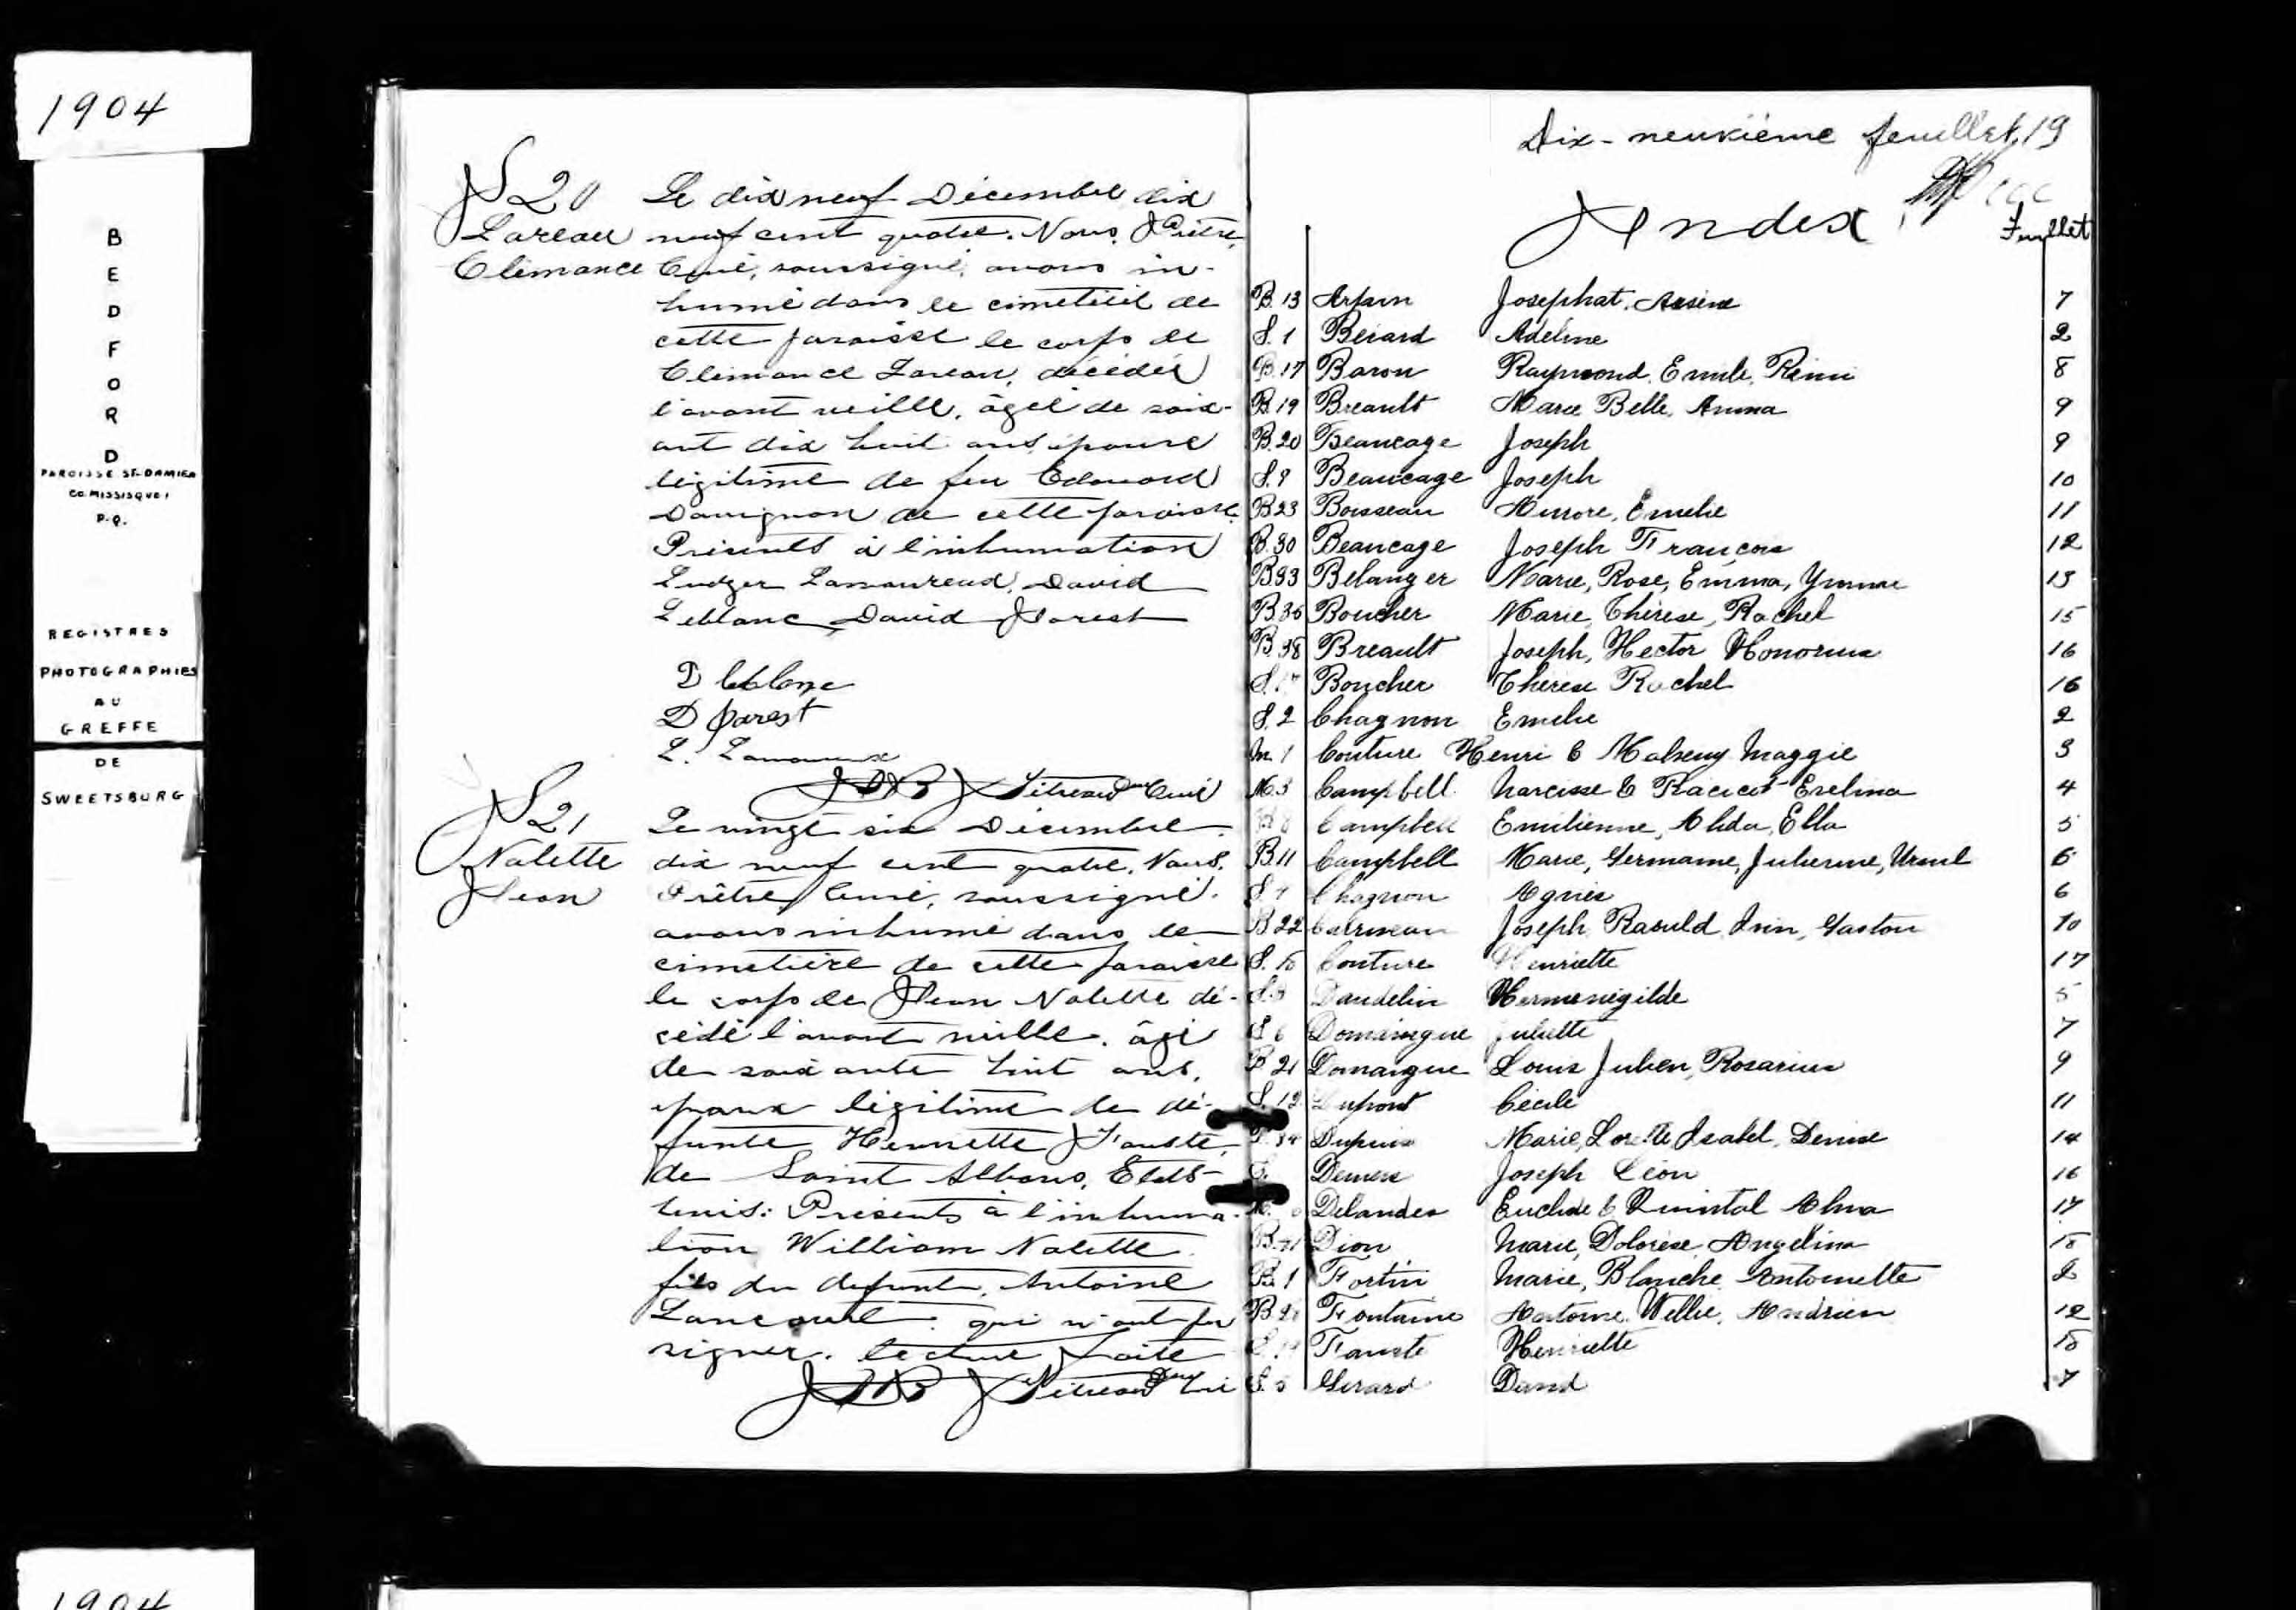 1904
B
E
D
F
O
R
D
PAROISSE ST-DAMIEN
CO. MISSISQUOI
P.Q.
REGISTRES
PHOTOGRAPHIES
AU
GREFFE
DE
SWEETSBURG
S 20
Lareau
Clémance
Le dix neuf Décembre dix
neuf cent quatre. Nous, Prêtre,
Curé, soussigné, avons in-
humé dans le cimetière de
cette paroisse le corps de
Clémance Lareau, décédée
l'avant veille, âgée de soix-
ant dix huit ans, épouse
légitime de feu Edouard
Davignon de cette paroisse.
Présents à l'inhumation
Ludger Lamoureux, David
Leblanc, David Forest
D leblanc
D forest
L. Lamoureux
Curé
S 21
Nalette
Jean
Le vingt six Décembre
dix neuf cent quatre, Nous,
Prêtre, Curé, soussigné,
avons inhumé dans le
cimetière de cette paroisse
le corps de Jean Nalette dé-
cédé l'avant veille, âgé
de soixante huit ans,
époux légitime de dé-
funte Henriette Fauste,
de Saint Albans, Etats-
Unis: Présents à l'inhuma-
tion William Nalette
fils du défunt, Antoine
Lancourt qui n'ont pu
signer. lecture faite
Dix-neuxième feuillet, 19
Index
Feuillet
B. 13 Arpin Josephat. Arsène 7
S. 1 Berard Adeline 2
B. 17 Baron Raymond, Emile, Rémi 8
B. 19 Breault Marie Belle, Anna 9
B. 20 Beaucage Joseph 9
S. 9 Beaucage Joseph 10
B 23 Boisseau Aurore, Emelie 11
B. 30 Beaucage Joseph François 12
B 33 Belanger Marie, Rose, Emma, Yvonne 13
B 36 Boucher Marie, Thérèse, Rachel 15
B. 38 Breault Joseph, Hector Honorius 16
S. 17 Boucher Thérèse Rachel 16
S. 2 Chagnon Emelie 2
M. 1 Couture Henri & Mahseny Maggie 3
M. 3 Campbell Narcisse & Racicot Exelina 4
Campbell Emilienne, Alida, Ella 5
B. 11 Campbell Marie, Germaine, Julienne, Ursule 6
S. 4 Chagnon Agnès 6
B 22 Joseph Raould, Gaston 10
S. 18 Couture Henriette 17
S. 3 Daudelin Hermenégilde 5
S 6 Domaingue Juliette 7
B 21 Domaingue Louis Julien, Rosarius 9
S. 12 Dupont Cécile 11
B. 34 Dupuis Marie, Lorette Isabel, Denise 14
Demers Joseph Léon 16
M. Delandes Euclide & Quintal Alma 17
B. 41 Dion Marie, Dolorèse, Angelina 18
B. 1 Fortin Marie, Blanche, Antoinette 2
B 28 Fontaine Antoine, Willie, Andrien 12
S. 19 Fauste Henriette 18
S. 5 Gerard David 7
1904